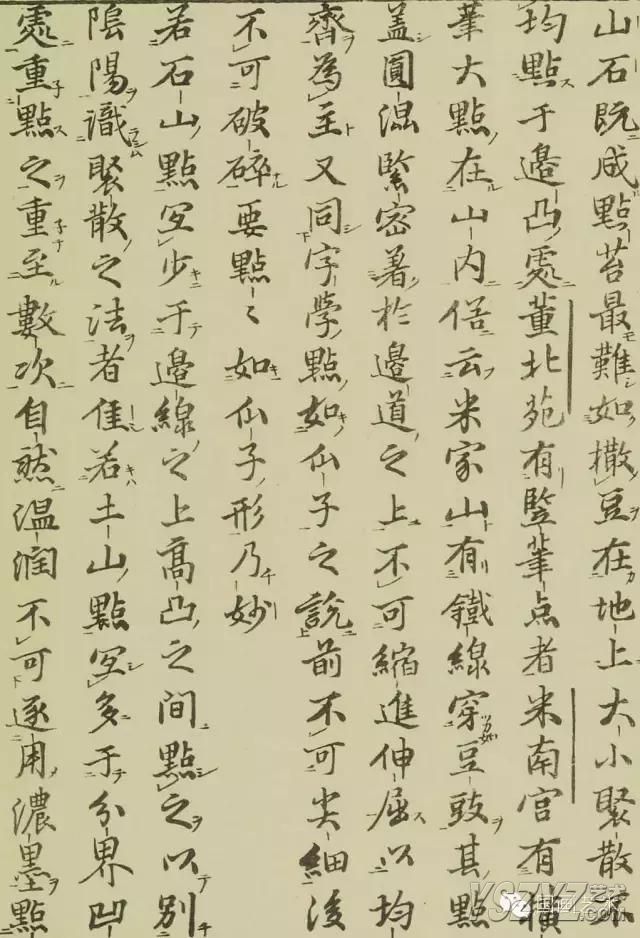 山石既成點苔最難如撒豆在地上大小聚散不
均點于邊凸處董北苑有豎筆点者米南宮有橫
筆大點在山内俗云米家山有鐵線穿豆豉其點
盖圓混緊密著於邊道之上不可縮進伸屈以均
齊為主又同字學點如仙子之說前不可尖細後
不可破碎要點〻如仙子形乃妙
若石山點宜少于邊線之上高凸之間點之以別
陰陽識聚散之法者佳若土山點宜多于分界凹
處重點之重至數次自然温潤不可逐用濃墨點
国画艺术